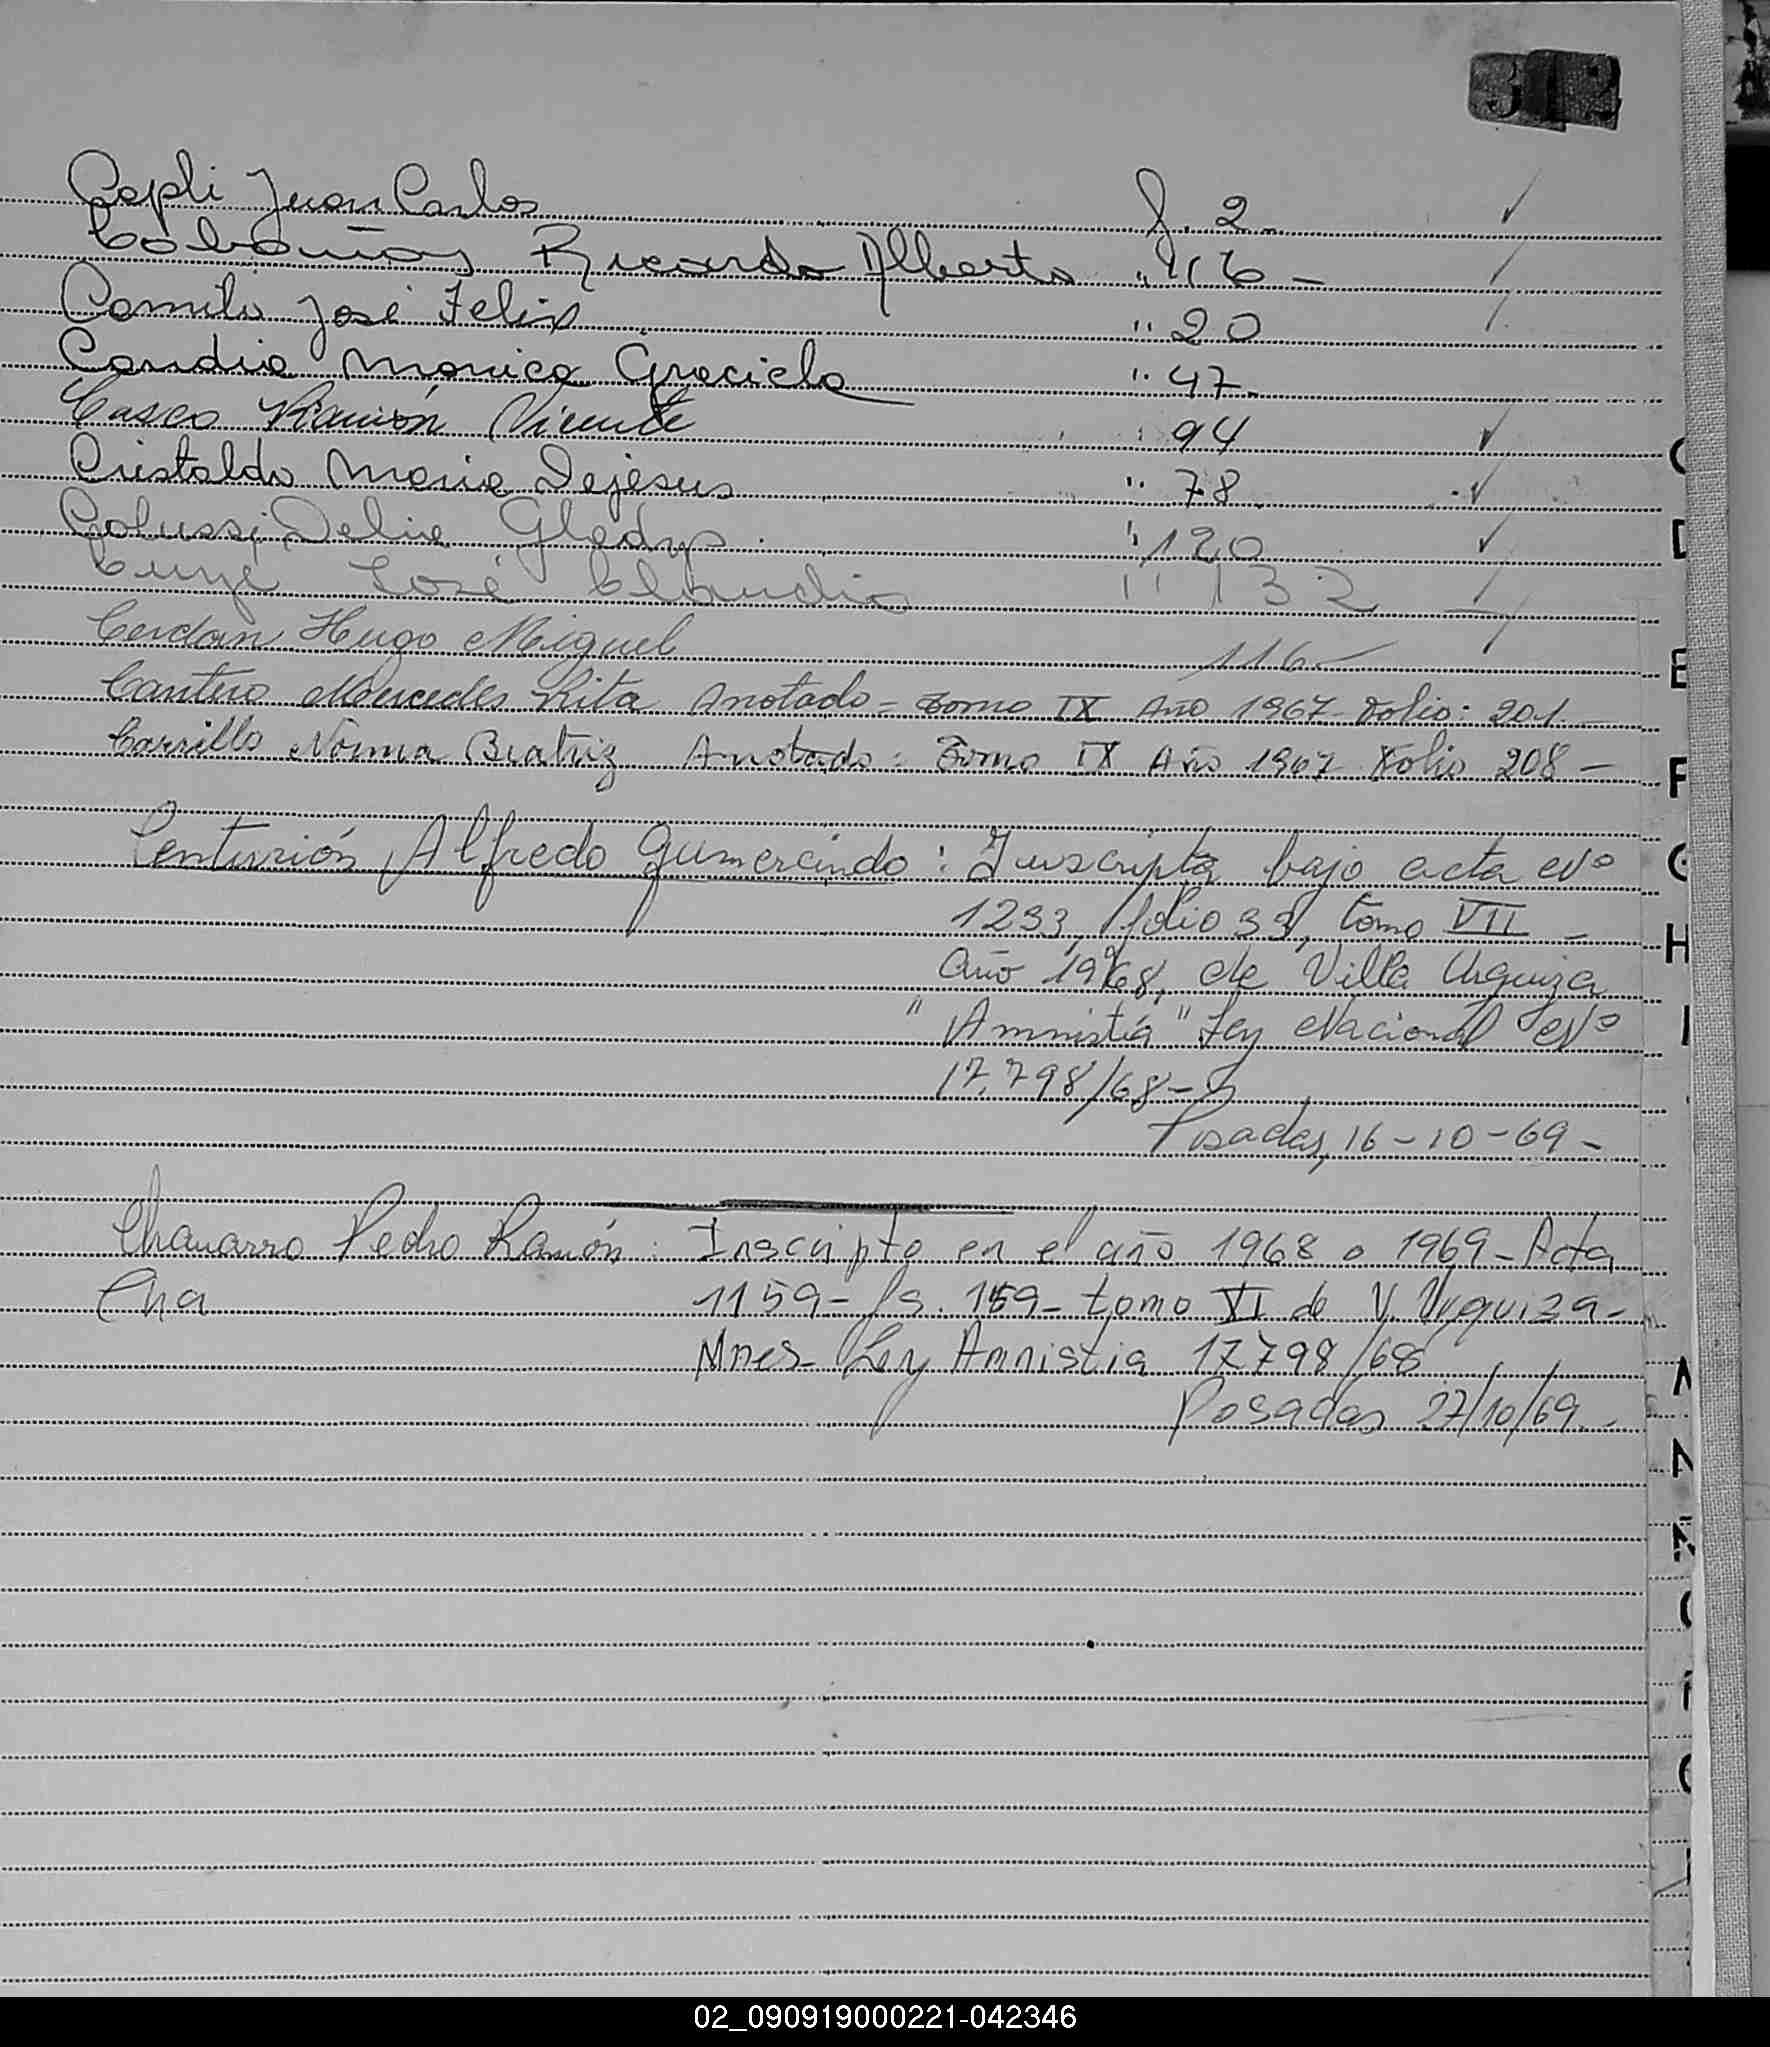 312
Capli Juan Carlos f. 2
Cabañas Ricardo Alberto " 16 -
Camilo José Felix " 20
Candia Monica Graciela " 47
Casco Ramón Vicente " 94
Cristaldo Maria Dejesus " 78
Colussi Delia Gladys " 120
José Claudio " 132
Cerdan Hugo Miguel 116 -
Cantero Mercedes Rita Anotado = Tomo IX Año 1967 - Folio: 201 -
Carrillo Norma Beatriz Anotado: Tomo IX Año 1967 Folio 208 -
Centurión Alfredo Gumercindo: Inscripta bajo acta Nº
1233, folio 33, tomo VII -
Año 1968, de Villa Urquiza
"Amnistía" Ley Nacional Nº
17.798/68 -
Posadas, 16-10-69 -
Chavarro Pedro Ramón: Inscripto en el año 1968 o 1969 - Acta
Cha 1159 - fs. 159 - tomo VI de V. Urquiza -
Mnes - Ley Amnistia 17798/68
Posadas 27/10/69 -
C
D
E
F
G
H
I
M
N
Ñ
O
P
Q
02_090919000221-042346